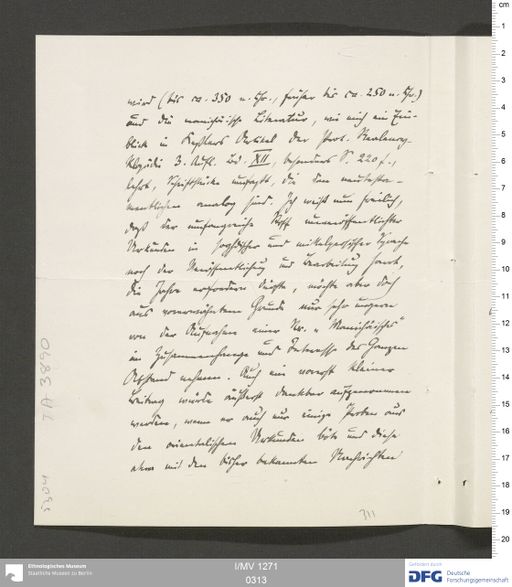 wird (bis ca. 350 n. Chr., früher bis ca. 250 n. Chr.)
und die manichäische Literatur, wie mich ein Ein-
blick in Kesslers Artikel der Prot. Realency-
klopädie 3. Aufl. Bd. XII, besonders S. 220 f.,
lehrt, Schriftstücke umfaßt, die den neutesta-
mentlichen analog sind. Ich weiß nun freilich,
daß der umfangreiche Stoff unveröffentlichter
Urkunden in soghdischer und mittelpersischer Sprache
noch der Veröffentlichung und Bearbeitung harrt,
die Jahre erfordern dürfte, möchte aber doch
aus vorerwähntem Grunde nur sehr ungern
von der Aufnahme einer Nr. „Manichäisches"
im Zusammenhange und Interesse des Ganzen
Abstand nehmen. Auch ein vorerst kleiner
Beitrag würde äußerst dankbar aufgenommen
werden, wenn er auch nur einige Proben aus
den orientalischen Urkunden böte und diese
etwa mit den bisher bekannten Nachrichten
TA 3890
311
Ethnologisches Museum
Staatliche Museen zu Berlin
I/MV 1271
0313
Gefördert durch
DFG Deutsche
Forschungsgemeinschaft
cm
1
2
3
4
5
6
7
8
9
10
11
12
13
14
15
16
17
18
19
20